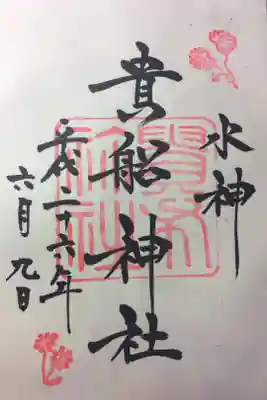 水神
貴船神社
平成二十六年
六月九日
貴船
神社